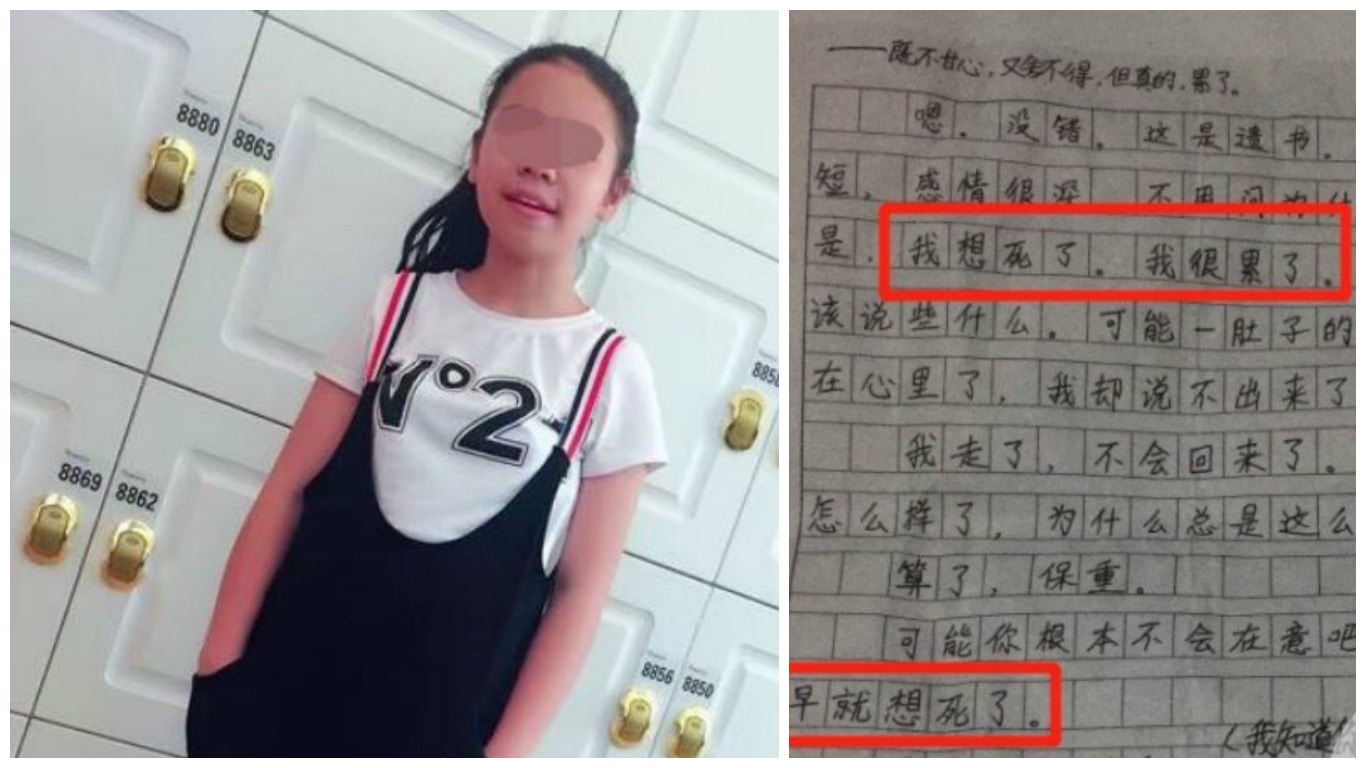 8880
8863
N°2
8869
8862
8856
8850
——既不甘心，又舍不得，但真的，累了。
嗯。没错。这是遗书。
短，感情很深 不用问为什
是，我想死了。我很累了。
该说些什么。可能一肚子的
在心里了，我却说不出来了
我走了，不会回来了。
怎么样了，为什么总是这么
算了，保重。
可能你根本不会在意吧
早就想死了。
（我知道